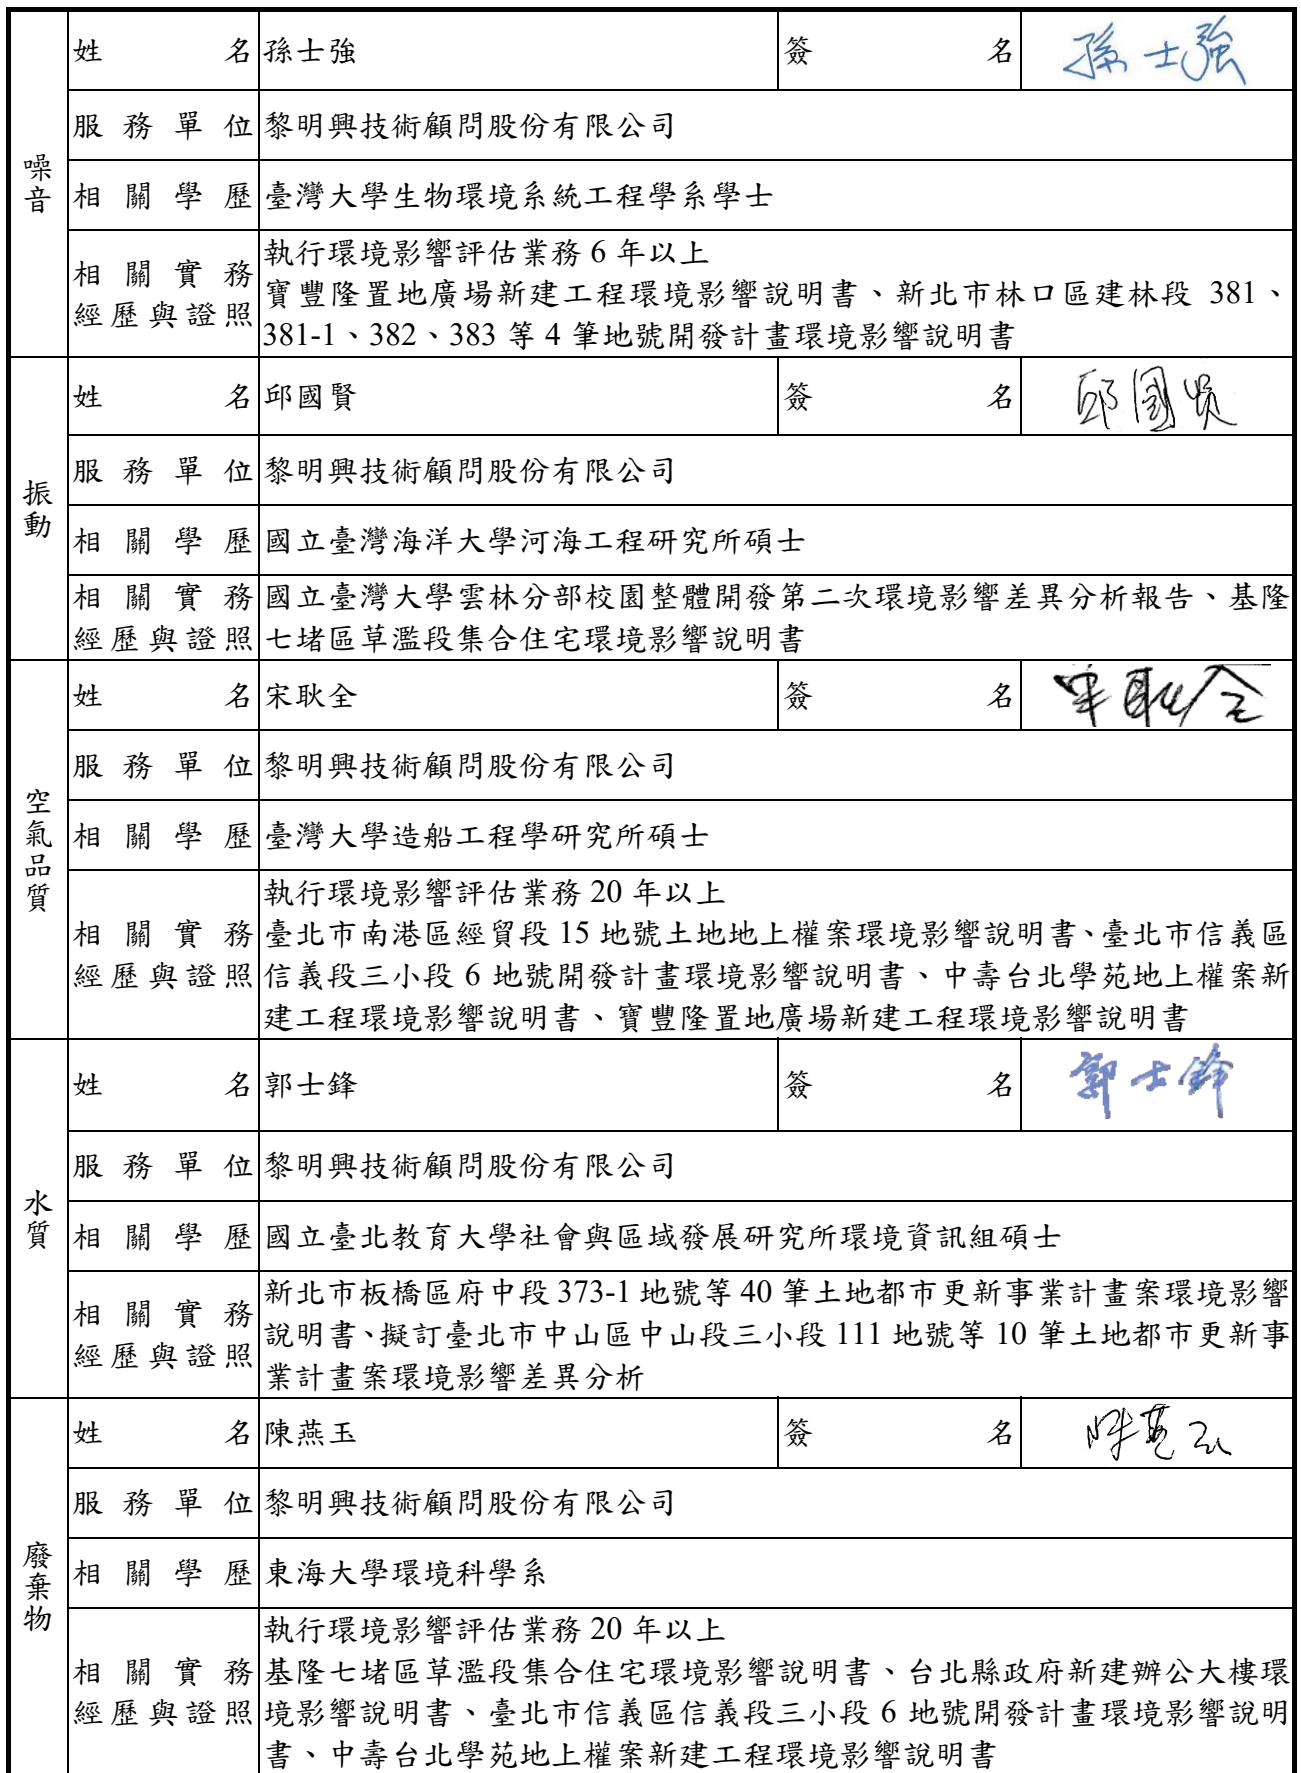 噪音
姓名 孫士強 簽名 孫士強
服務單位 黎明興技術顧問股份有限公司
相關學歷 臺灣大學生物環境系統工程學系學士
相關實務經歷與證照
執行環境影響評估業務 6 年以上
寶豐隆置地廣場新建工程環境影響說明書、新北市林口區建林段 381、
381-1、382、383 等 4 筆地號開發計畫環境影響說明書
振動
姓名 邱國賢 簽名 邱國賢
服務單位 黎明興技術顧問股份有限公司
相關學歷 國立臺灣海洋大學河海工程研究所碩士
相關實務經歷與證照
國立臺灣大學雲林分部校園整體開發第二次環境影響差異分析報告、基隆
七堵區草濫段集合住宅環境影響說明書
空氣品質
姓名 宋耿全 簽名 宋耿全
服務單位 黎明興技術顧問股份有限公司
相關學歷 臺灣大學造船工程學研究所碩士
相關實務經歷與證照
執行環境影響評估業務 20 年以上
臺北市南港區經貿段 15 地號土地地上權案環境影響說明書、臺北市信義區
信義段三小段 6 地號開發計畫環境影響說明書、中壽台北學苑地上權案新
建工程環境影響說明書、寶豐隆置地廣場新建工程環境影響說明書
水質
姓名 郭士鋒 簽名 郭士鋒
服務單位 黎明興技術顧問股份有限公司
相關學歷 國立臺北教育大學社會與區域發展研究所環境資訊組碩士
相關實務經歷與證照
新北市板橋區府中段 373-1 地號等 40 筆土地都市更新事業計畫案環境影響
說明書、擬訂臺北市中山區中山段三小段 111 地號等 10 筆土地都市更新事
業計畫案環境影響差異分析
廢棄物
姓名 陳燕玉 簽名 陳燕玉
服務單位 黎明興技術顧問股份有限公司
相關學歷 東海大學環境科學系
相關實務經歷與證照
執行環境影響評估業務 20 年以上
基隆七堵區草濫段集合住宅環境影響說明書、台北縣政府新建辦公大樓環
境影響說明書、臺北市信義區信義段三小段 6 地號開發計畫環境影響說明
書、中壽台北學苑地上權案新建工程環境影響說明書